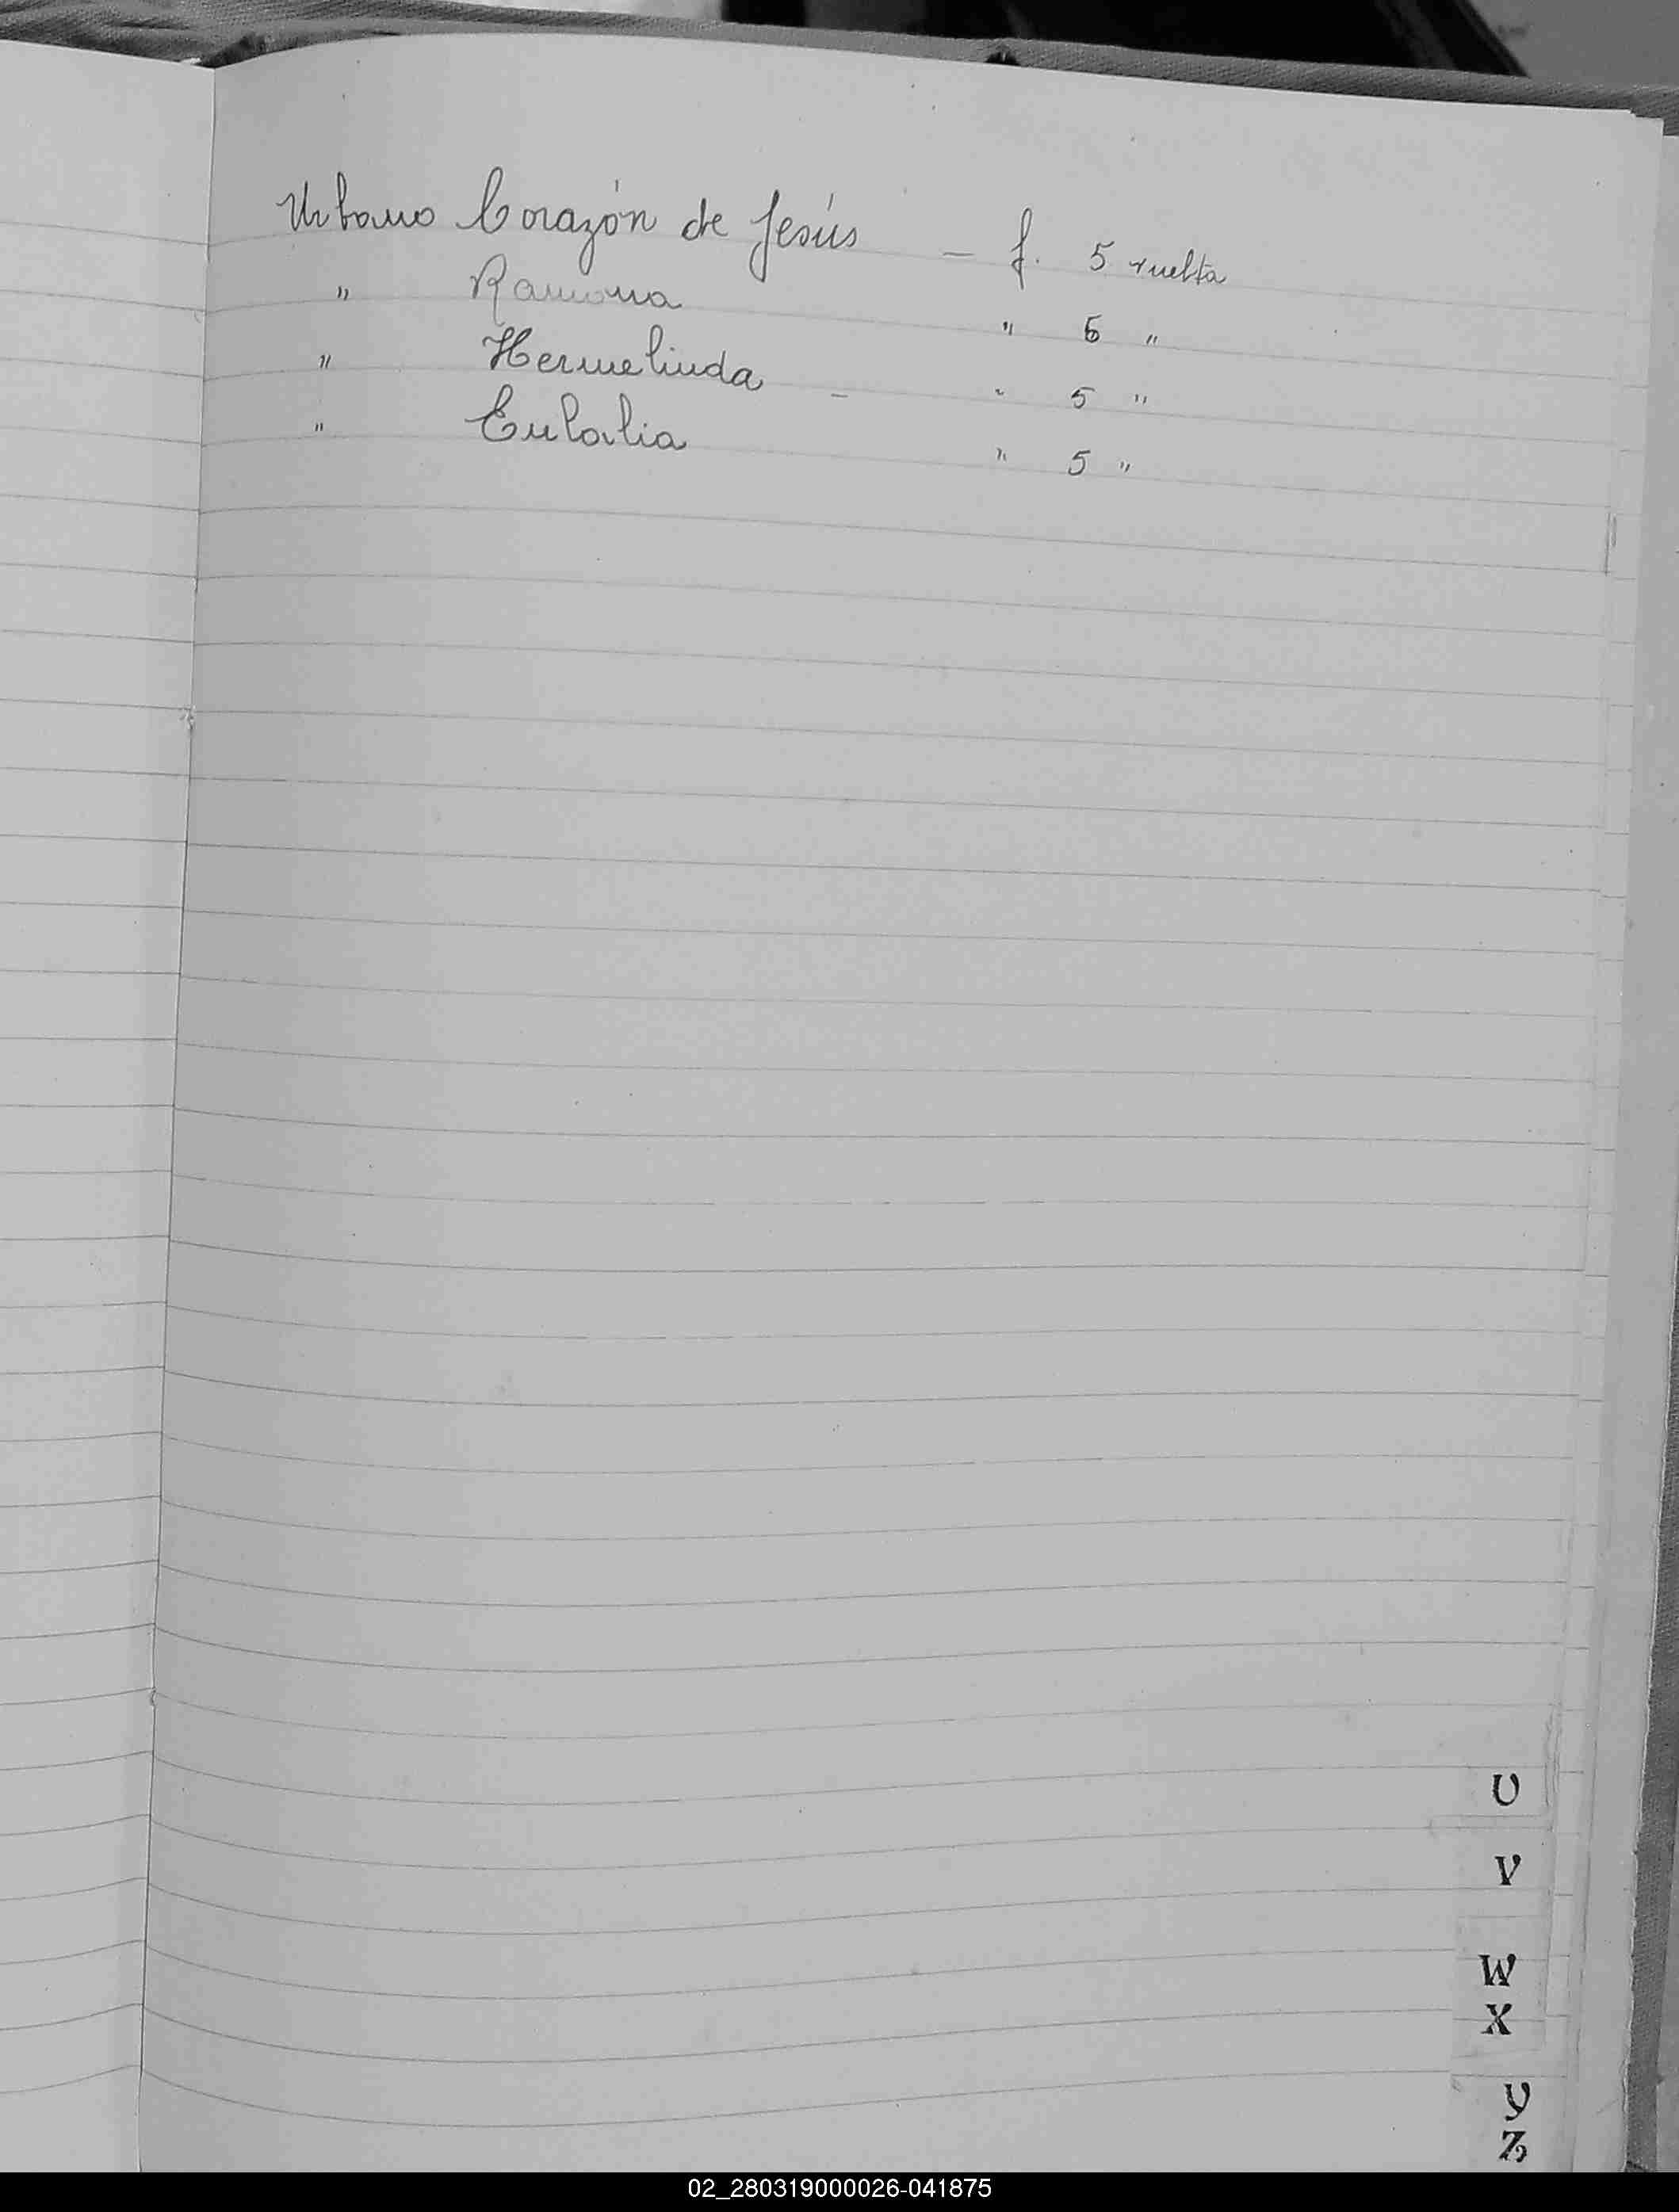 Urbano Corazón de Jesús — f. 5 vuelta
" Ramona " 5 "
" Hermelinda — " 5 "
" Eulalia " 5 "
U
V
W
X
Y
Z
02_280319000026-041875